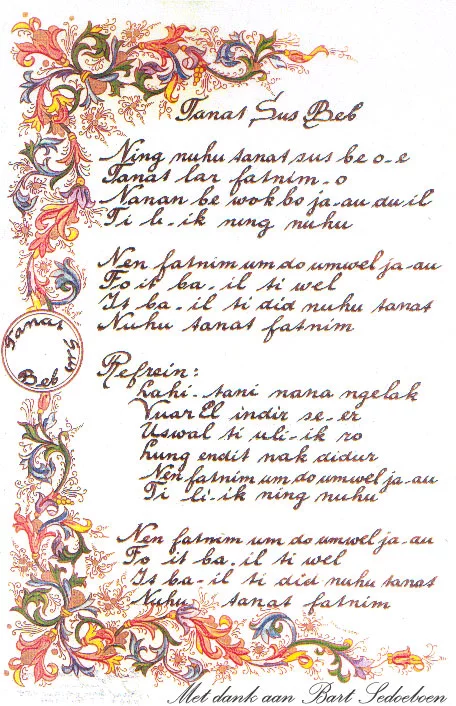 Tanat Sus Beb
Ning nuhu tanat sus be o-e
Tanat lar fatnim-o
Nanan be wok bo ja-au du il
Ti li-ik ning nuhu
Nen fatnim um do umwel ja-au
Fo it ba-il ti wel
It ba-il ti did nuhu tanat
Nuhu tanat fatnim
Tanat Sus
Beb
Refrein:
Lahi-tani nana ngelak
Vuar El indir se-er
Uswal ti uli-ik ro
Lung endit nak didur
Nen fatnim um do umwel ja-au
Ti li-ik ning nuhu
Nen fatnim um do umwel ja-au
Fo it ba-il ti wel
It ba-il ti did nuhu tanat
Nuhu tanat fatnim
Met dank aan Bart Sedoeboen